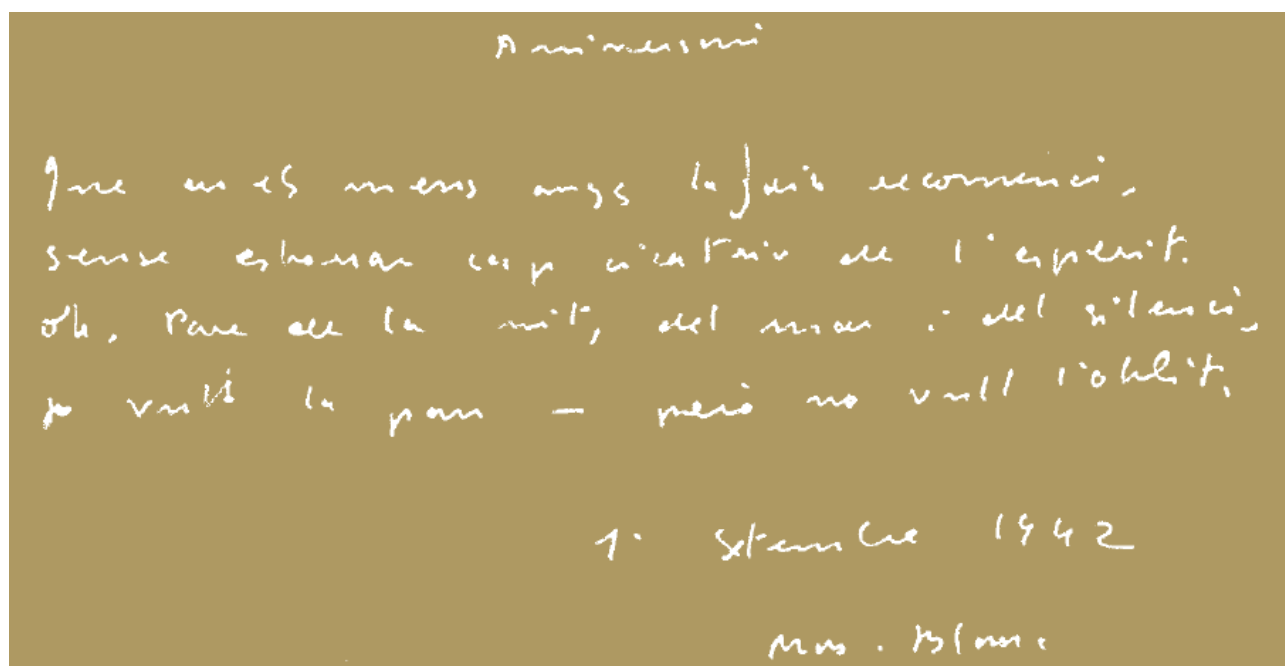 Aniversari
Que en els meus anys la joia recomenci,
sense esborrar cap cicatriu de l'esperit.
Oh, Pare de la nit, del mar i del silenci,
jo vull la pau — però no vull l'oblit.
1. Setembre 1942
Mas. Blanc